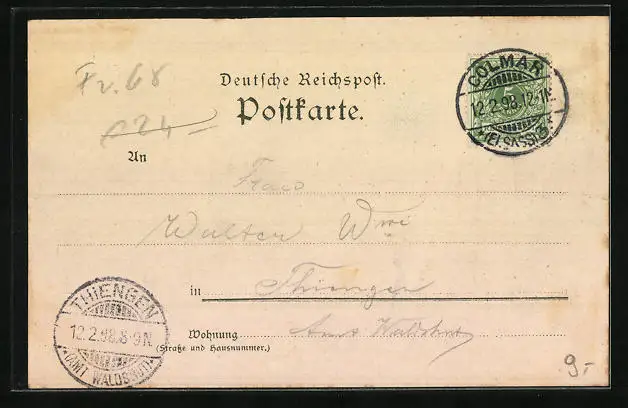 Fr. 68
24
Deutsche Reichspost.
Postkarte.
COLMAR
12.2.98.12-1N.
(ELSASS)
5
An
Frau
Walter
in Thiengen
THIENGEN
12.2.98.8-9N.
(AMT WALDSHUT)
Wohnung Amt Waldshut
(Straße und Hausnummer.)
9.-